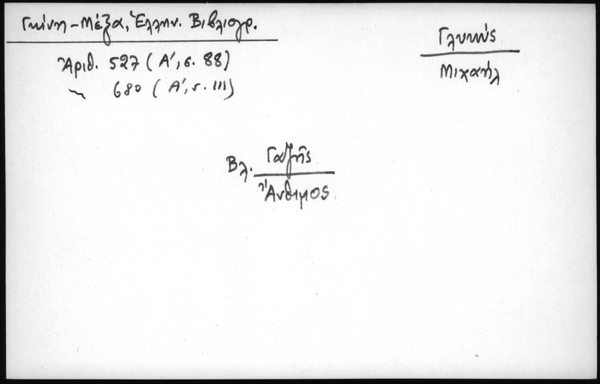 Γκίνη - Μέξα, Ἑλλην. Βιβλιογρ.
Ἀριθ. 527 (Α', σ. 88)
〃 680 (Α', σ. 111)
Γλυκύς
Μιχαήλ
Βλ. Γαζῆς
Ἄνθιμος